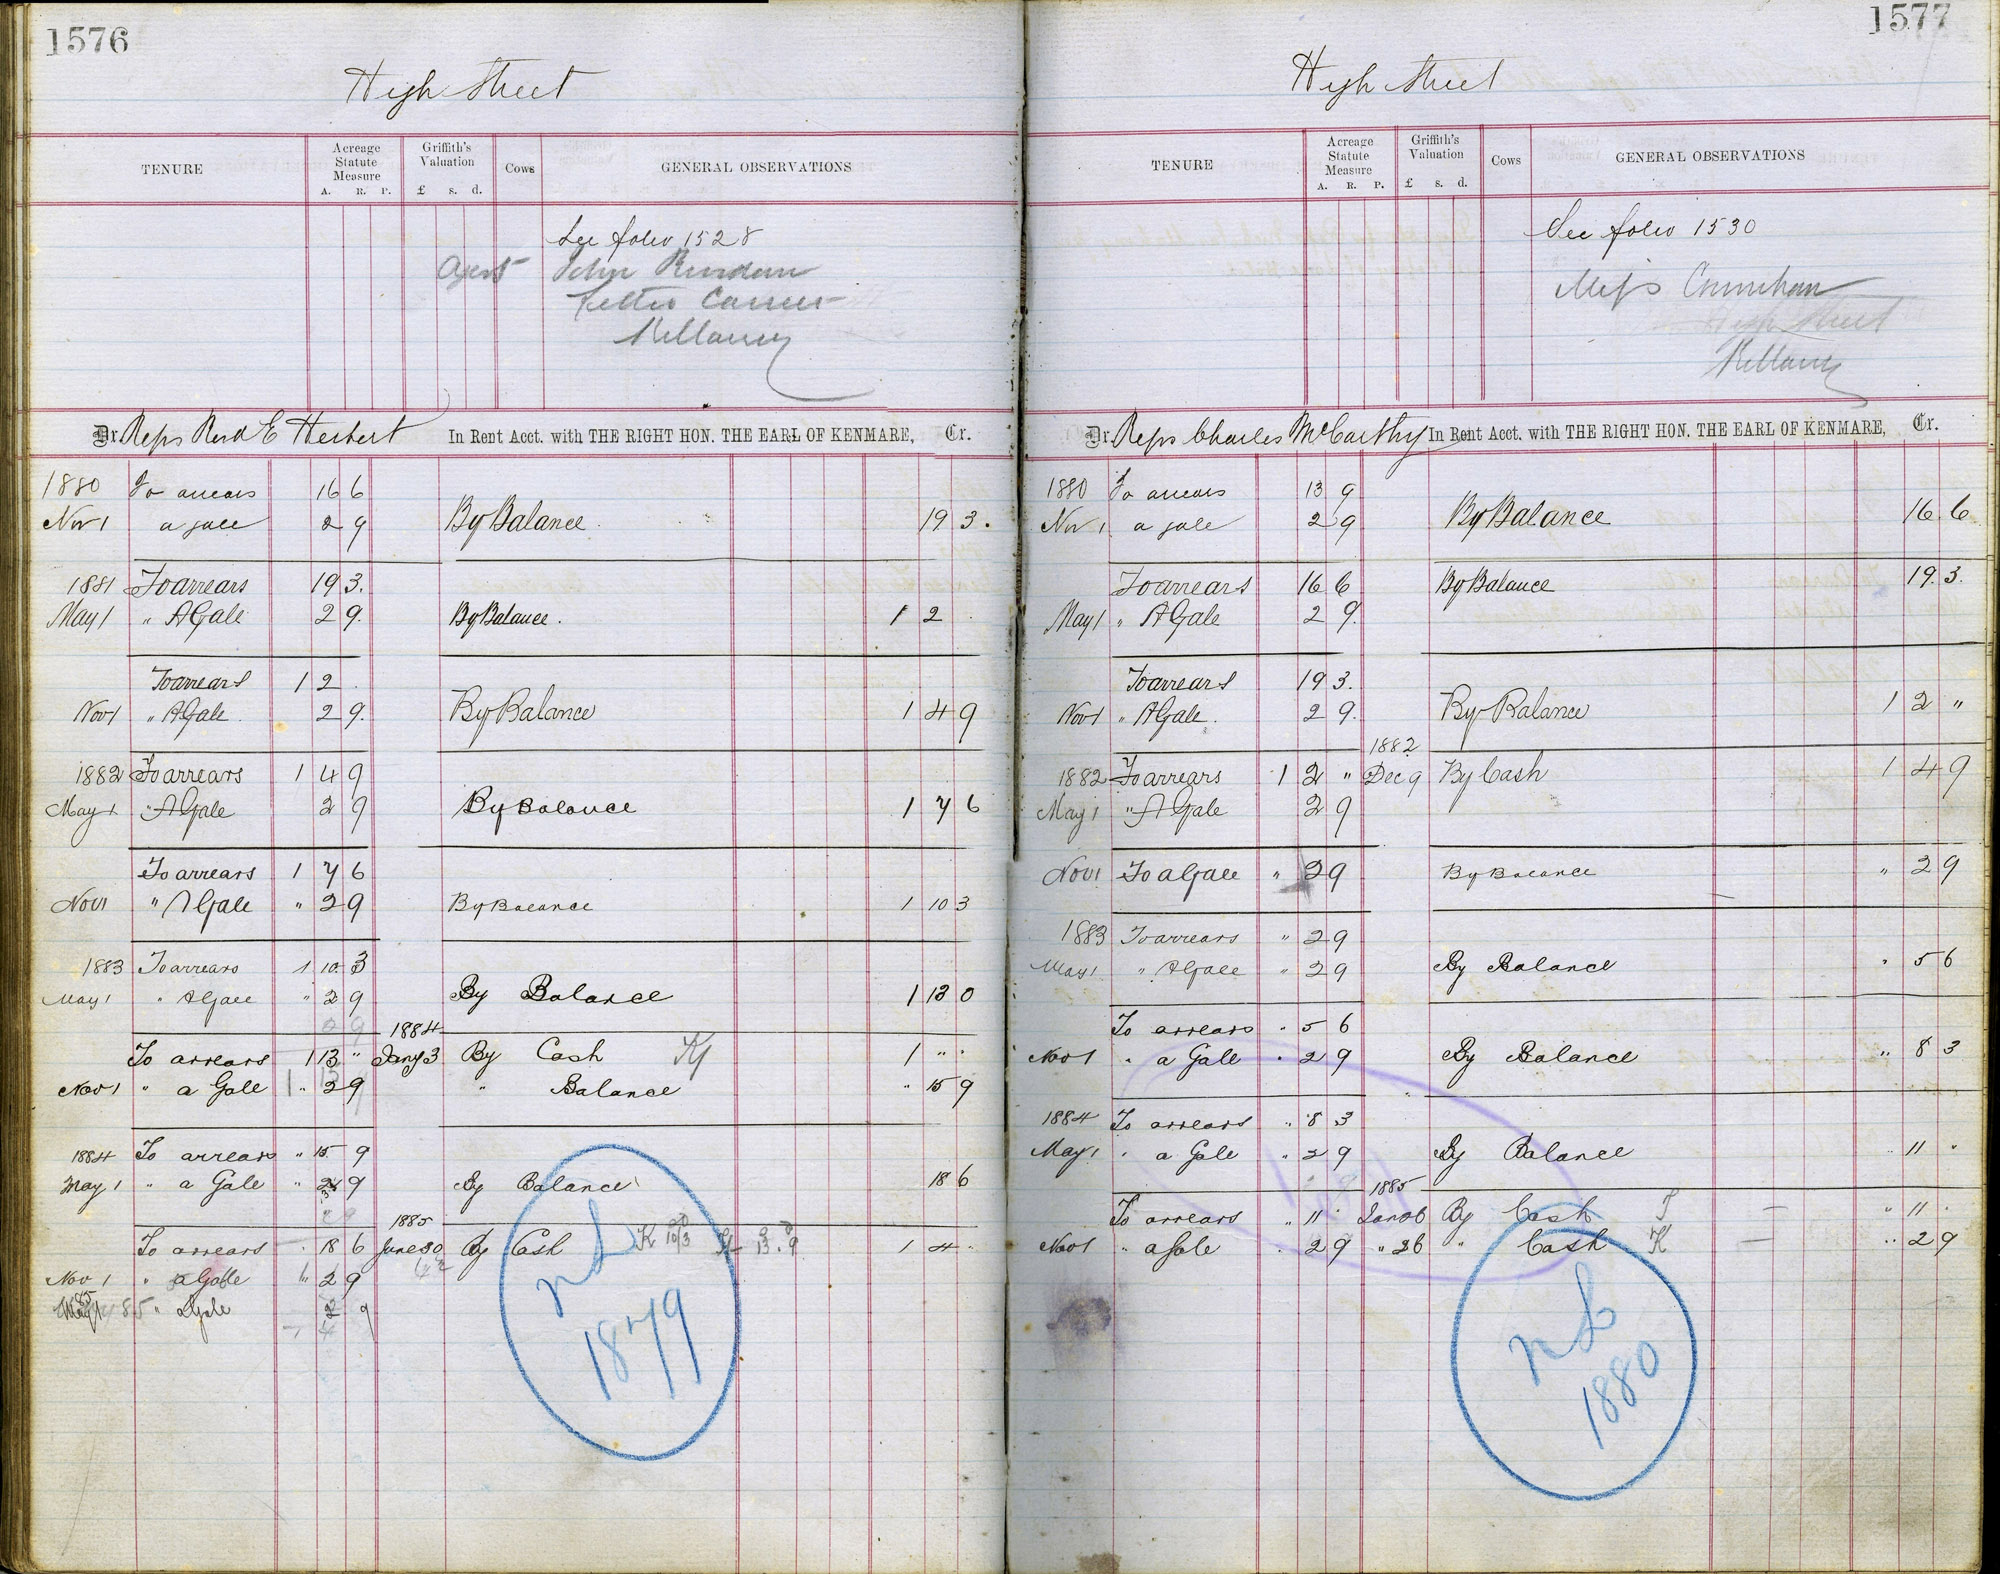 1576
High Street
TENURE
Acreage Statute Measure
A. R. P.
Griffith's Valuation
£ s. d.
Cows
GENERAL OBSERVATIONS
See folio 1528
Agent John
Letter Carrier
Killarney
Dr. Reps Revd E Herbert In Rent Acct. with THE RIGHT HON. THE EARL OF KENMARE, Cr.
1880 To arrears 16 6
Nov 1 a gale 2 9 By Balance 19 3.
1881 To arrears 19 3.
May 1 " A Gale 2 9. By Balance. 1 2
To arrears 1 2 .
Nov 1 " A Gale 2 9. By Balance 1 4 9
1882 To arrears 1 4 9
May 1 " A Gale 2 9 By Balance 1 7 6
To arrears 1 7 6
Nov 1 " A Gale " 2 9 By Balance 1 10 3
1883 To arrears 1 10 3
May 1 " A Gale " 2 9 By Balance 1 13 0
1884
To arrears 1 13 " Jany 3 By Cash 1 " "
Nov 1 " a Gale " 2 9 " Balance " 15 9
1884 To arrears " 15 9
May 1 " a Gale " 2 9 By Balance 18 6
1885
To arrears . 18 6 June 30 By Cash K 1 4 .
Nov 1 " a Gale " 2 9
May 85 " a Gale 2 9
nL
1879
1577
High Street
TENURE
Acreage Statute Measure
A. R. P.
Griffith's Valuation
£ s. d.
Cows
GENERAL OBSERVATIONS
See folio 1530
Miss
High Street
Killarney
Dr. Reps Charles McCarthy In Rent Acct. with THE RIGHT HON. THE EARL OF KENMARE, Cr.
1880 To arrears 13 9
Nov 1 a gale 2 9 By Balance 16 6
To arrears 16 6 By Balance 19 3.
May 1 " A Gale 2 9.
To arrears 19 3.
Nov 1 " A Gale. 2 9. By Balance 1 2 "
1882
1882 To arrears 1 2 " Dec 9 By Cash 1 4 9
May 1 " A Gale 2 9
Nov 1 To a Gale " 2 9 By Balance " 2 9
1883 To arrears " 2 9
May 1 " A Gale " 2 9 By Balance " 5 6
To arrears " 5 6
Nov 1 " a Gale " 2 9 By Balance " 8 3
1884 To arrears " 8 3
May 1 " a Gale " 2 9 By Balance " 11 "
1885
To arrears " 11 " By Cash " 11 .
Nov 1 " a Gale . 2 9 " 26 " Cash K " 2 9
nL
1880